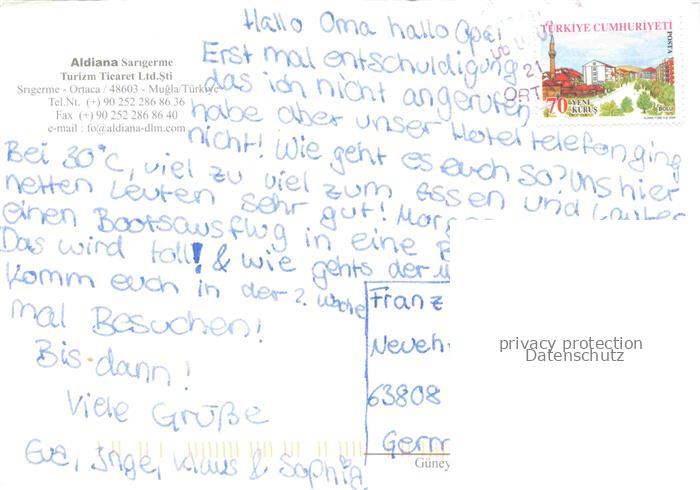 Hallo Oma hallo Opa!
Erst mal entschuldigung
das ich nicht angerufen
habe aber unser Hoteltelefon ging
nicht! Wie geht es euch so? Uns hier
Bei 30°C, viel zu viel zum essen und lauter
netten Leuten sehr gut!
einen Bootsausflug in eine
Das wird toll! & wie gehts der
Komm euch in der 2. Woche
mal Besuchen!
Bis dann!
Viele Grüße
Eva, Inge, Klaus & Sophia
Aldiana Sarıgerme
Turizm Ticaret Ltd.Şti
Sırıgerme - Ortaca / 48603 - Muğla/Türkiye
Tel.Nt. (+) 90 252 286 86 36
Fax (+) 90 252 286 86 40
e-mail : fo@aldiana-dlm.com
TÜRKİYE CUMHURİYETİ
POSTA
70 YENİ KURUŞ
BOLU
21
ORT
Franz
Neueh
63808
Germ
privacy protection
Datenschutz
Güney